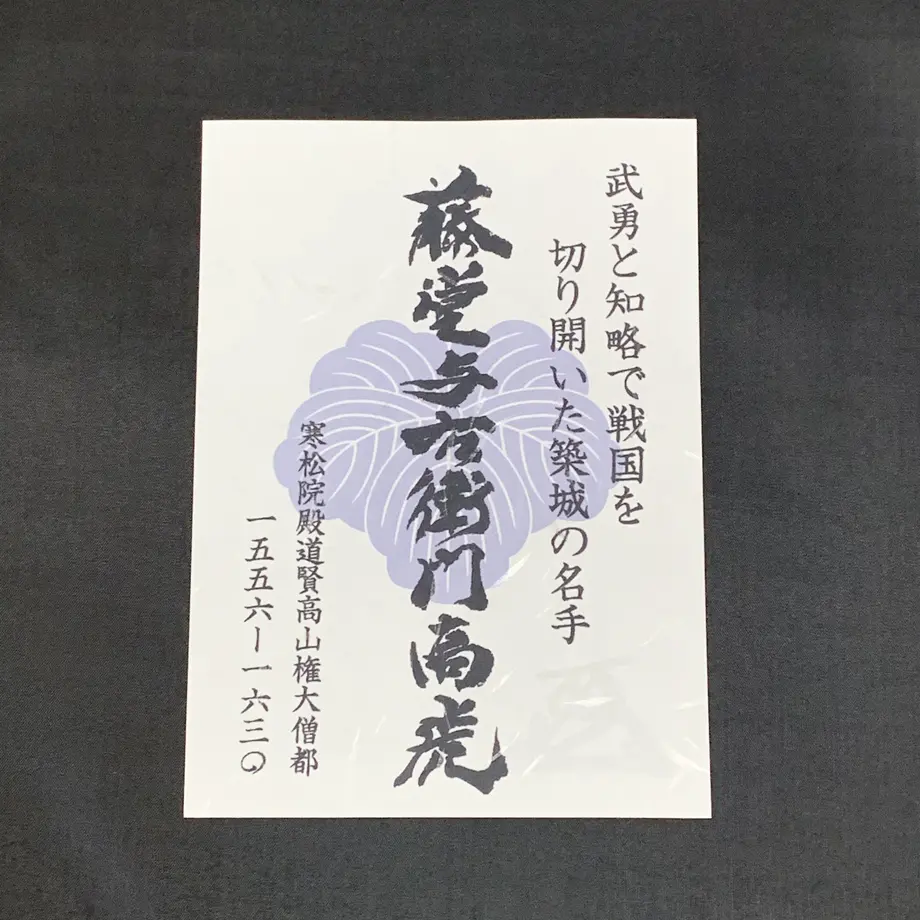 武勇と知略で戦国を
切り開いた築城の名手
藤堂与右衛門高虎
寒松院殿道賢高山権大僧都
一五五六ー一六三〇